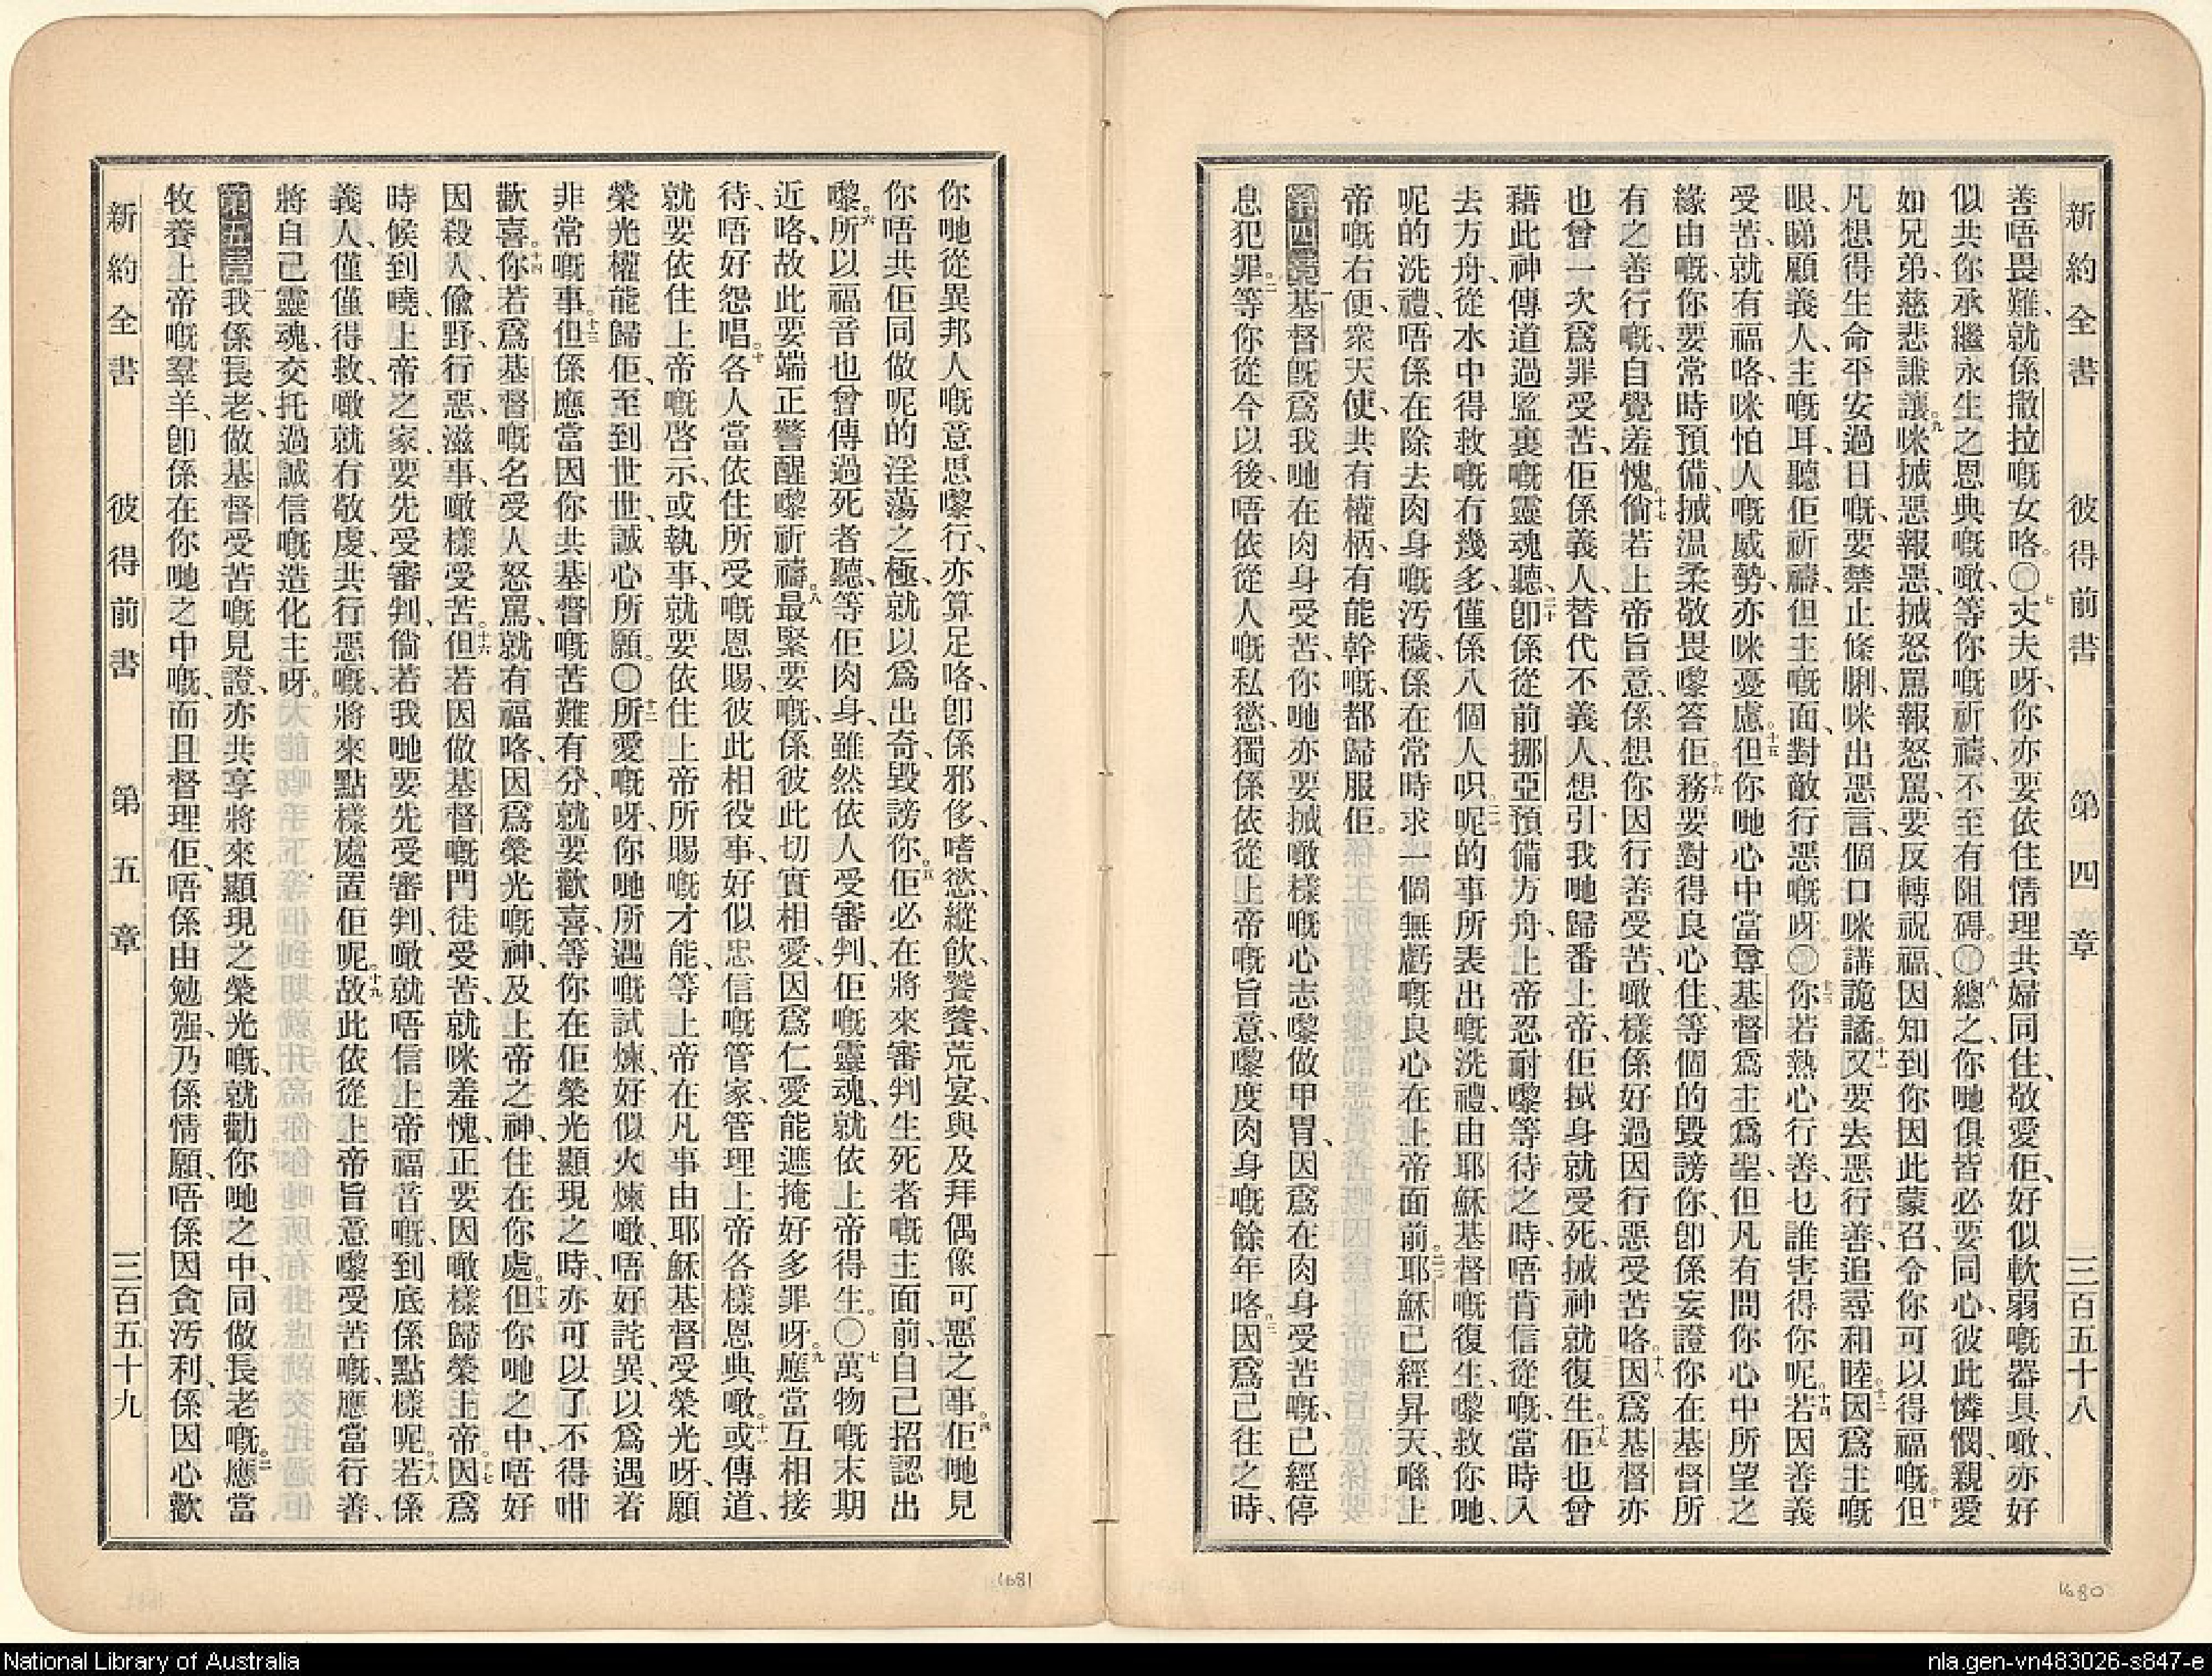 新約全書 彼得前書 第四章 三百五十八
善唔畏難、就係撒拉嘅女咯。〇七丈夫呀、你亦要依住情理共婦同住、敬愛佢、好似軟弱嘅器具噉、亦好
似共你承繼永生之恩典嘅噉、等你嘅祈禱、不至有阻碍。〇八總之、你哋俱皆必要同心、彼此憐憫、親愛
如兄弟、慈悲謙讓。九咪搣惡報惡、搣怒罵報怒罵、要反轉祝福、因知到你因此蒙召、令你可以得福嘅。十但
凡想得生命平安過日嘅、要禁止條脷、咪出惡言、個口咪講詭譎。十一又要去惡行善、追尋和睦。十二因爲主嘅
眼、睇顧義人、主嘅耳、聽佢祈禱、但主嘅面、對敵行惡嘅呀。〇十三你若熱心行善、乜誰害得你呢。十四若因善義
受苦、就有福咯、咪怕人嘅威勢、亦咪憂慮。十五但你哋心中當尊基督爲主爲聖、但凡有問你心中所望之
緣由嘅、你要常時預備、搣温柔敬畏嚟答佢。十六務要對得良心住、等個的毀謗你、卽係妄證你在基督所
有之善行嘅、自覺羞愧。十七倘若上帝旨意、係想你因行善受苦、噉樣係好過因行惡受苦咯。十八因爲基督亦
也曾一次爲罪受苦、佢係義人、替代不義人、想引我哋歸番上帝、佢拭身就受死、搣神就復生。十九佢也曾
藉此神傳道過監裏嘅靈魂聽、二十卽係從前挪亞預備方舟、上帝忍耐嚟等待之時、唔肯信從嘅、當時入
去方舟、從水中得救嘅冇幾多、僅係八個人呮。二一呢的事所表出嘅洗禮、由耶穌基督嘅復生、嚟救你哋、
呢的洗禮、唔係在除去肉身嘅汚穢、係在常時求一個無虧嘅良心在上帝面前。二二耶穌已經昇天、喺上
帝嘅右便、衆天使、共有權柄、有能幹嘅、都歸服佢。
第四章 一基督旣爲我哋在肉身受苦、你哋亦要搣噉樣嘅心志嚟做甲胃、因爲在肉身受苦嘅、已經停
息犯罪。二等你從今以後、唔依從人嘅私慾、獨係依從上帝嘅旨意、嚟度肉身嘅餘年咯。三因爲已往之時、
你哋從異邦人嘅意思嚟行、亦算足咯、卽係邪侈、嗜慾、縱飮、饕餮、荒宴、與及拜偶像可惡之事。四佢哋見
你唔共佢同做呢的淫蕩之極、就以爲出奇、毀謗你。五佢必在將來審判生死者嘅主面前、自己招認出
嚟。六所以福音也曾傳過死者聽、等佢肉身、雖然依人受審判、佢嘅靈魂、就依上帝得生。〇七萬物嘅末期
近咯、故此要端正警醒嚟祈禱。八最緊要嘅、係彼此切實相愛、因爲仁愛能遮掩好多罪呀。九應當互相接
待、唔好怨唱。十各人當依住所受嘅恩賜、彼此相役事、好似忠信嘅管家、管理上帝各樣恩典噉。十一或傳道、
就要依住上帝嘅啓示、或執事、就要依住上帝所賜嘅才能、等上帝在凡事由耶穌基督受榮光呀、願
榮光權能歸佢、至到世世、誠心所願。〇十二所愛嘅呀、你哋所遇嘅試煉、好似火煉噉、唔好詫異、以爲遇着
非常嘅事。十三但係應當因你共基督嘅苦難有分、就要歡喜、等你在佢榮光顯現之時、亦可以了不得咁
歡喜。十四你若爲基督嘅名受人怒罵、就有福咯、因爲榮光嘅神、及上帝之神、住在你處。十五但你哋之中、唔好
因殺人、偷野、行惡、滋事、噉樣受苦。十六但若因做基督嘅門徒受苦、就咪羞愧、正要因噉樣歸榮上帝。十七因爲
時候到嘵、上帝之家、要先受審判、倘若我哋要先受審判、噉就唔信上帝福音嘅、到底係點樣呢。十八若係
義人、僅僅得救、噉就冇敬虔、共行惡嘅、將來點樣處置佢呢。十九故此依從上帝旨意嚟受苦嘅、應當行善、
將自己靈魂、交托過誠信嘅造化主呀。
第五章 一我係長老、做基督受苦嘅見證、亦共享將來顯現之榮光嘅、就勸你哋之中、同做長老嘅。二應當
牧養上帝嘅羣羊、卽係在你哋之中嘅、而且督理佢、唔係由勉强、乃係情願、唔係因貪汚利、係因心歡
新約全書 彼得前書 第五章 三百五十九
1681
1680
National Library of Australia
nla.gen-vn483026-s847-e